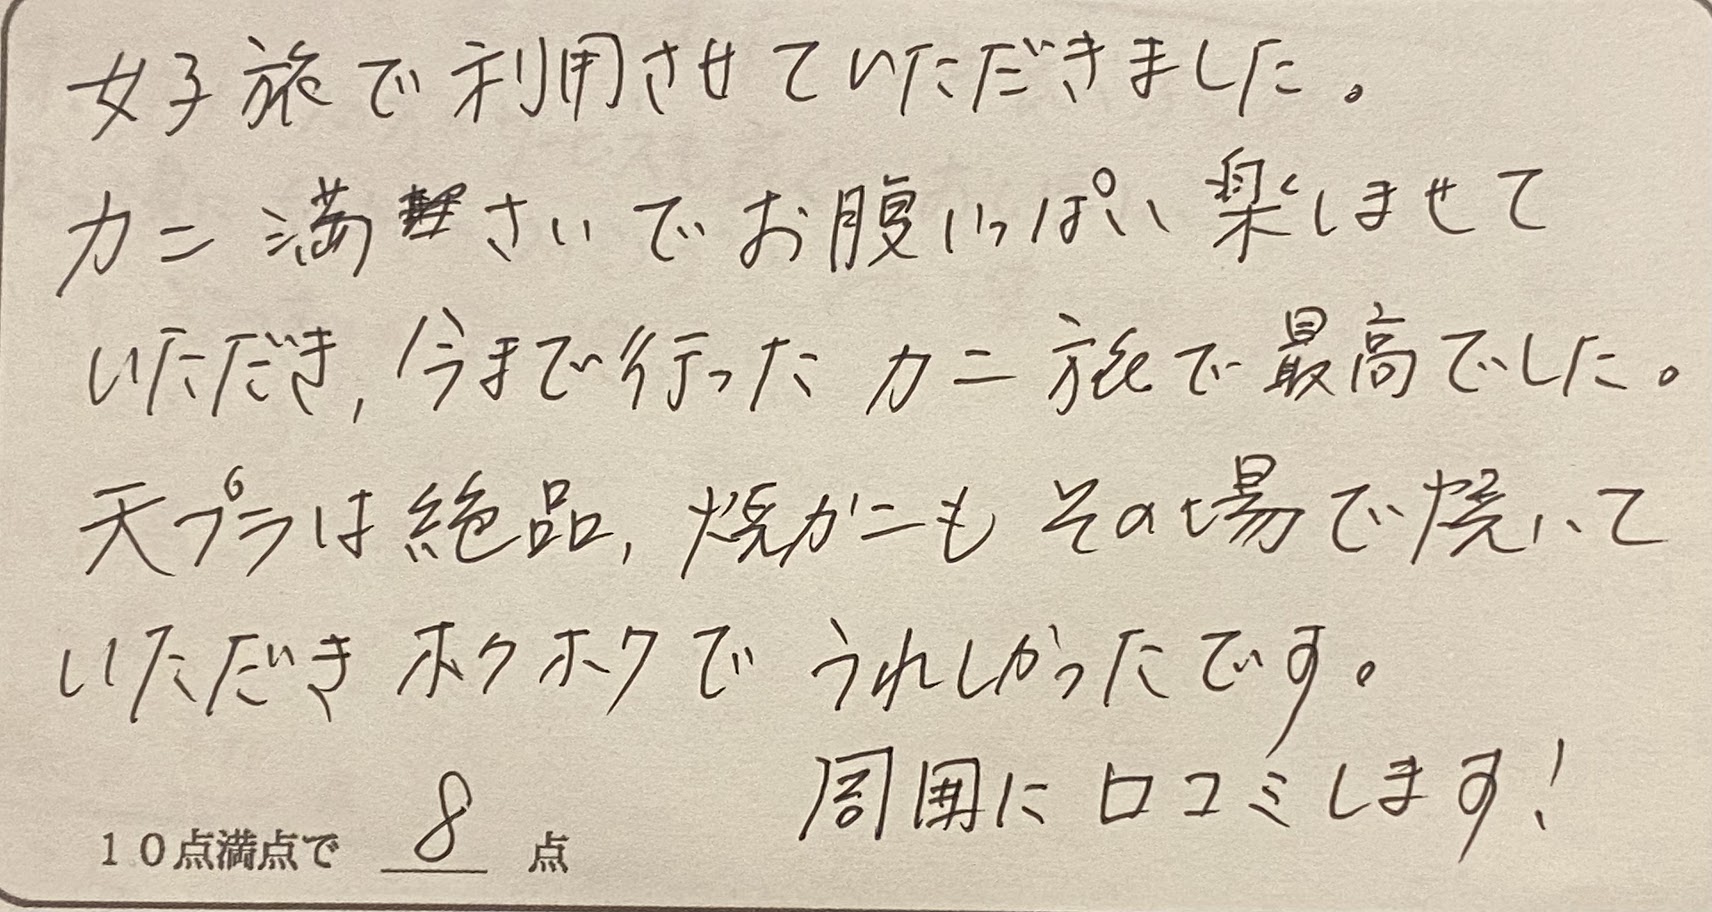 女子旅で利用させていただきました。
カニ満さいでお腹いっぱい楽しませて
いただき,今まで行ったカニ旅で最高でした。
天プラは絶品,焼がニもその場で焼いて
いただきホクホクでうれしかったです。
周囲に口コミします!
10点満点で 8 点